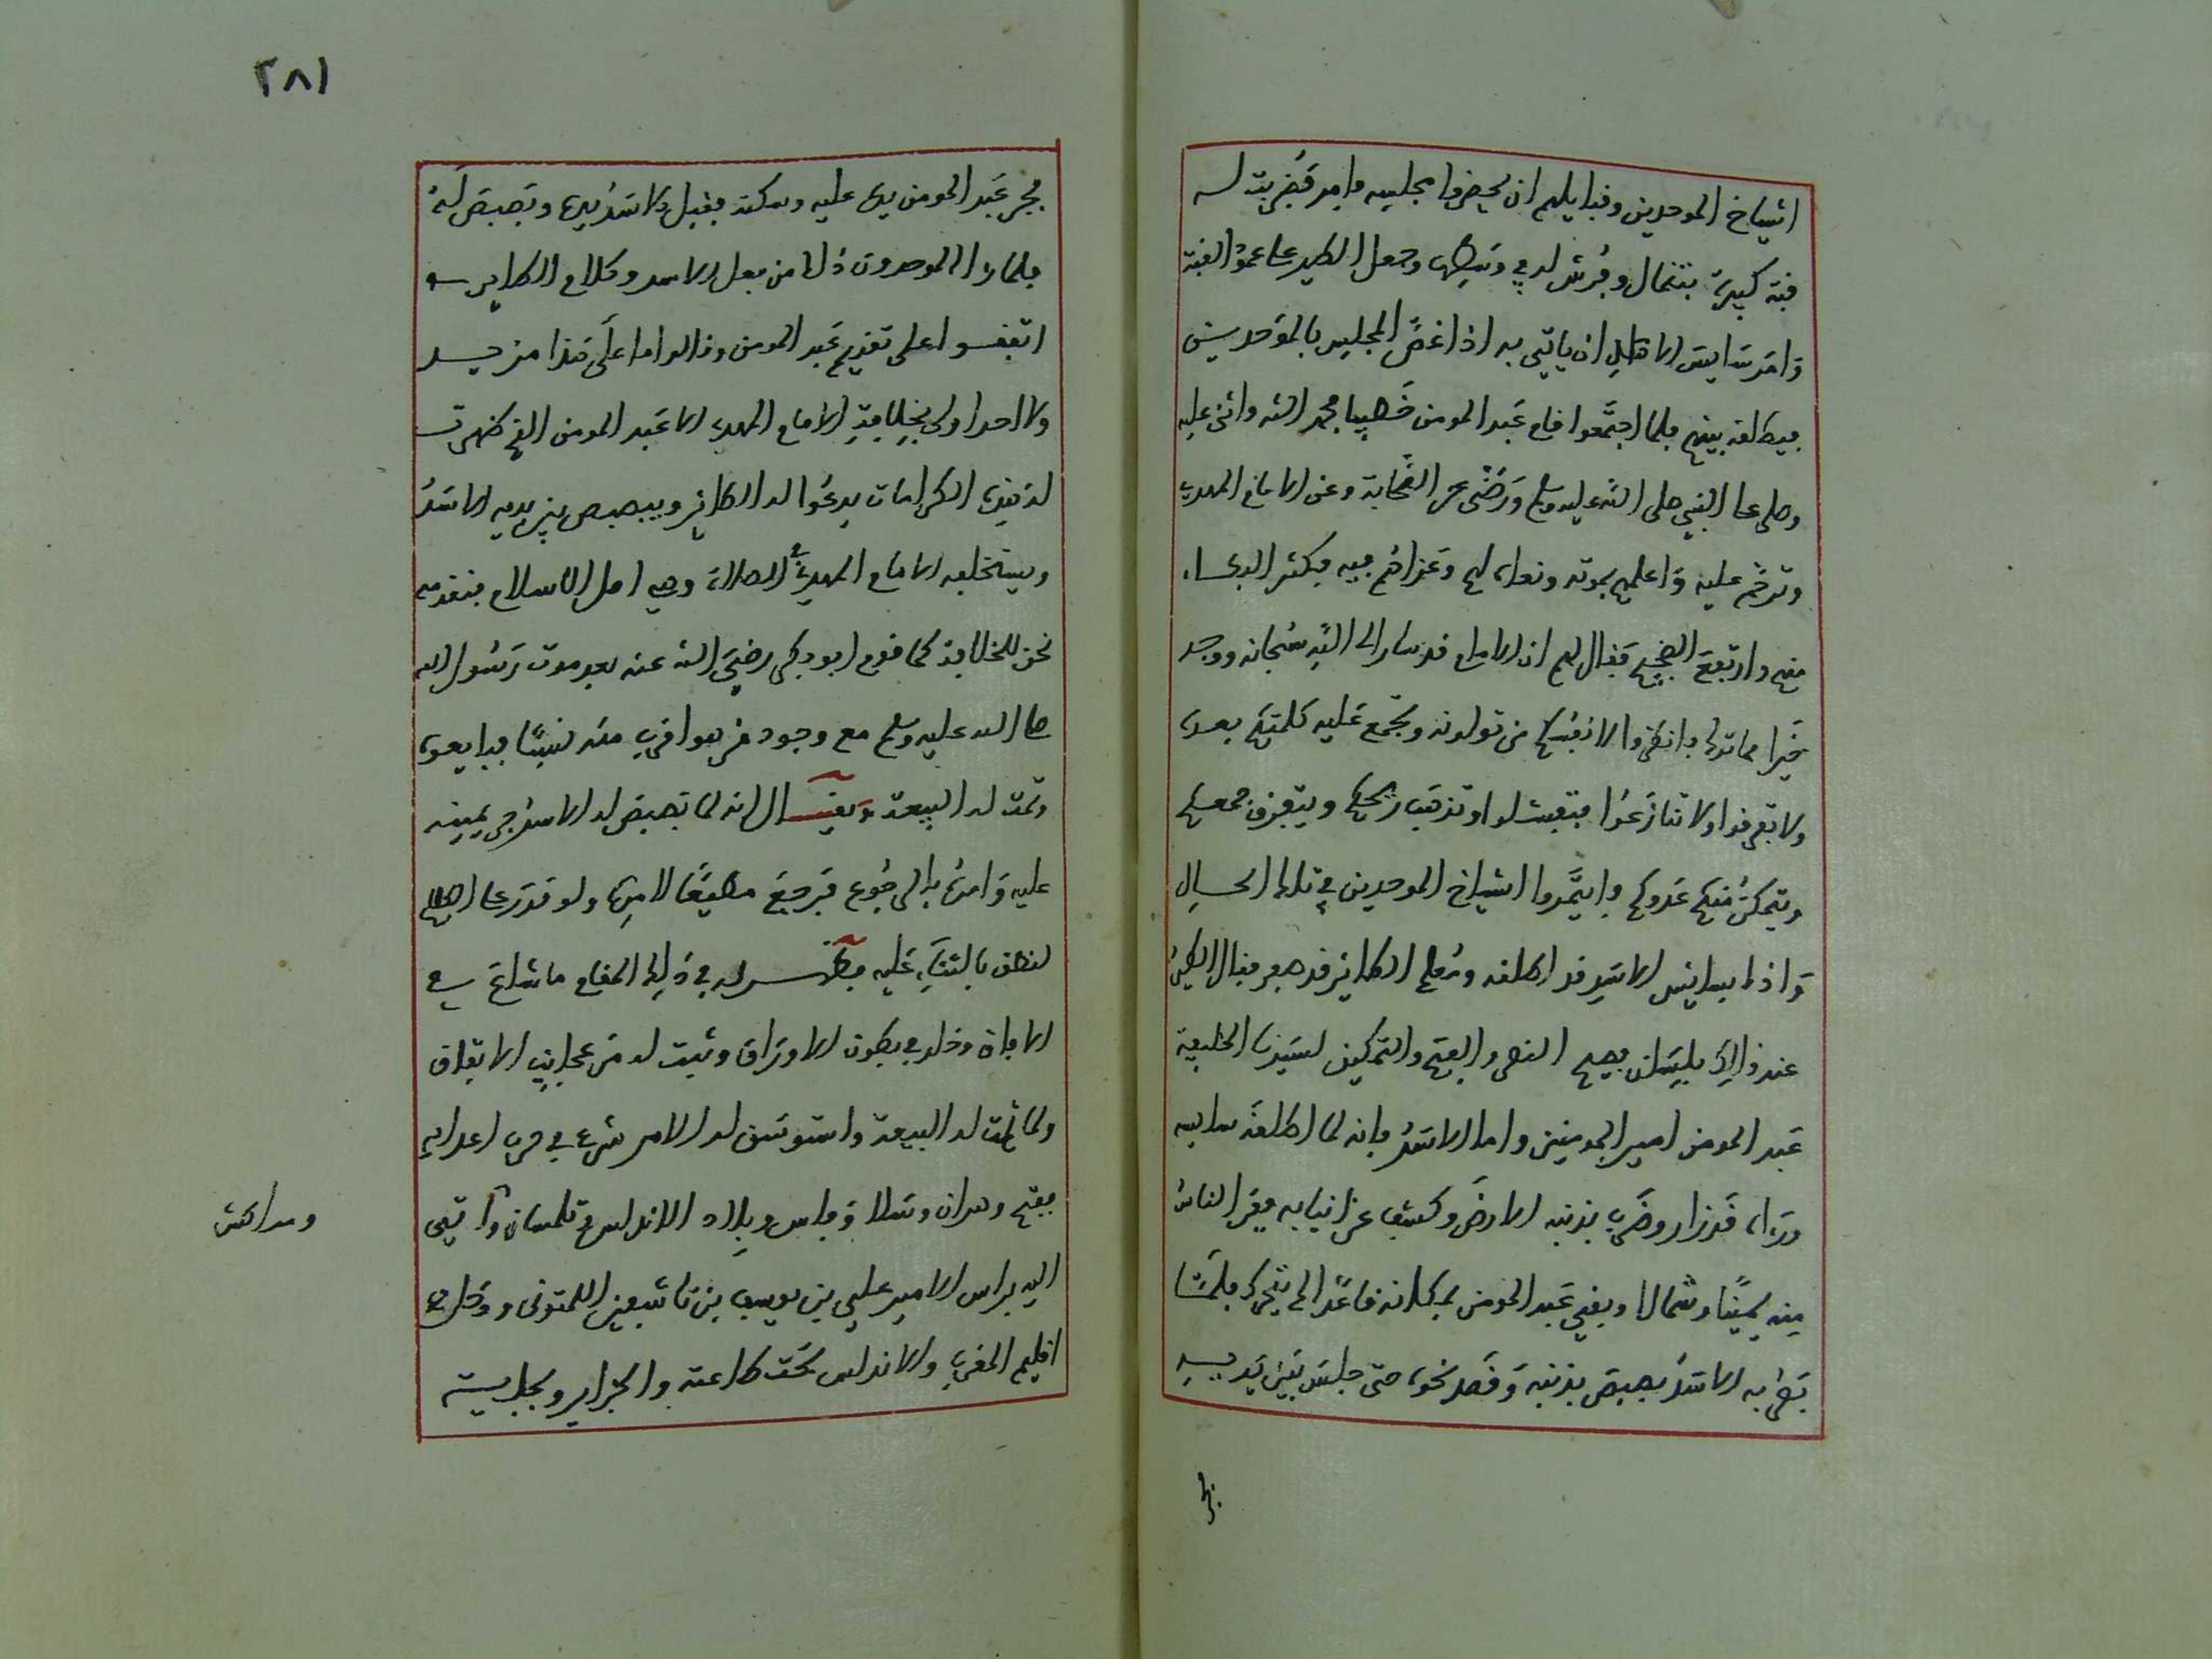 اشياخ الموحدين وقبايلهم ان يحضروا مجلسه وامر فضربت له
قبة كبيرة بتنمال وفرش له في وسطها وجعل الطير على عمود القبة
وامر سايس الاسد ان ياتي به اذا غص المجلس بالموحدين
فيطلقه بينهم فلما اجتمعوا قام عبد المومن خطيبا فحمد الله واثنى عليه
وصلى على النبي صلى الله عليه وسلم ورضى عن الصحابة وعن الامام المهدي
وترحم عليه واعلمهم بموته ونعاه لهم وعزاهم فيه فكثر البكاء
منهم وارتفع الضجيج فقال لهم ان الامام قد سار الى الله سبحانه ووجد
خيرا مما ترك فانظروا لانفسكم من تولونه وتجمع عليه كلمتكم بعده
ولا تفرقوا ولا تنازعوا فتفشلوا وتذهب ريحكم ويتفرق جمعكم
ويتمكن منكم عدوكم وايتمروا اشياخ الموحدين في تلك الحال
واذا بسايس الاسد قد اطلقه ومعلم الطاير قد صفر فقال الطير
عند ذالك بلسان فصيح النصر والفتح والتمكين لسيدنا الخليفة
عبد المومن امير المومنين واما الاسد فانه لما اطلقه سايسه
وراه قد زار وضرب بذنبه الارض وكشف عن انيابه ففر الناس
منه يمينا وشمالا وبقي عبد المومن بمكانه قاعدا لم يتحرك فلما
بصر به الاسد بصبص بذنبه وقصد نحوه حتى جلس بين يديه
فجر
٢٨١
فجر عبد المومن يده عليه وسكنه فقبل الاسد يده وبصبص له
فلما را الموحدون ذلك من فعل الاسد وكلام الطاير
اتفقوا على تقديم عبد المومن وقالوا ما على هذا مزيد
ولا احد اولى بخلافة الامام المهدي الا عبد المومن الذي ظهرت
له هذه الكرامات يدعوا له الطاير ويبصبص بين يديه الاسد
ويستخلفه الامام المهدي في الصلاة وهي اصل الاسلام فنقدمه
نحن للخلافة كما قدم ابو بكر رضي الله عنه بعد موت رسول الله
صلى الله عليه وسلم مع وجود من هو اقرب منه نسبا فبايعوه
وتمت له البيعة ويقال انه لما بصبص له الاسد جر يمينه
عليه وامره بالرجوع فرجع مطيعا لامره ولو قدر على الكلام
لنطق بالثناء عليه فظهر له في ذلك المقام ما شاع في
الافاق وخلد في بطون الاوراق وثبت له من عجايب الاتفاق
ولما تمت له البيعة واستوسق له الامر شرع في حرب اعدايه
ففتح وهران وسلا وفاس وبلاد الاندلس وتلمسان واتي
ومراكش
اليه براس الامير علي بن يوسف بن تاشفين اللمتوني ودخل
اقليم المغرب والاندلس تحت طاعته والجزاير وبجاية